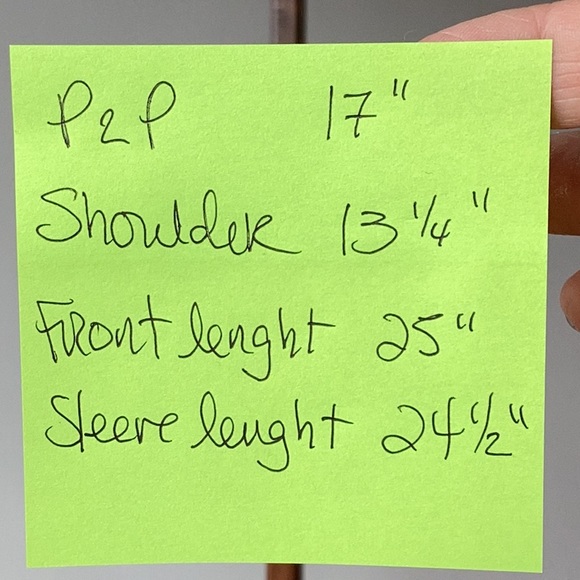 P2P 17"
Shoulder 13 1/4"
Front lenght 25"
Sleeve lenght 24 1/2"